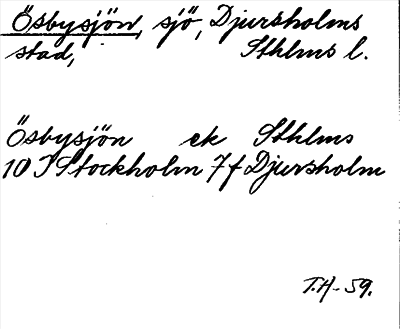 Ösbysjön, sjö, Djursholms
stad, Sthlms l.
Ösbysjön ek Sthlms
10 I Stockholm 7 f Djursholm
T.H-59.